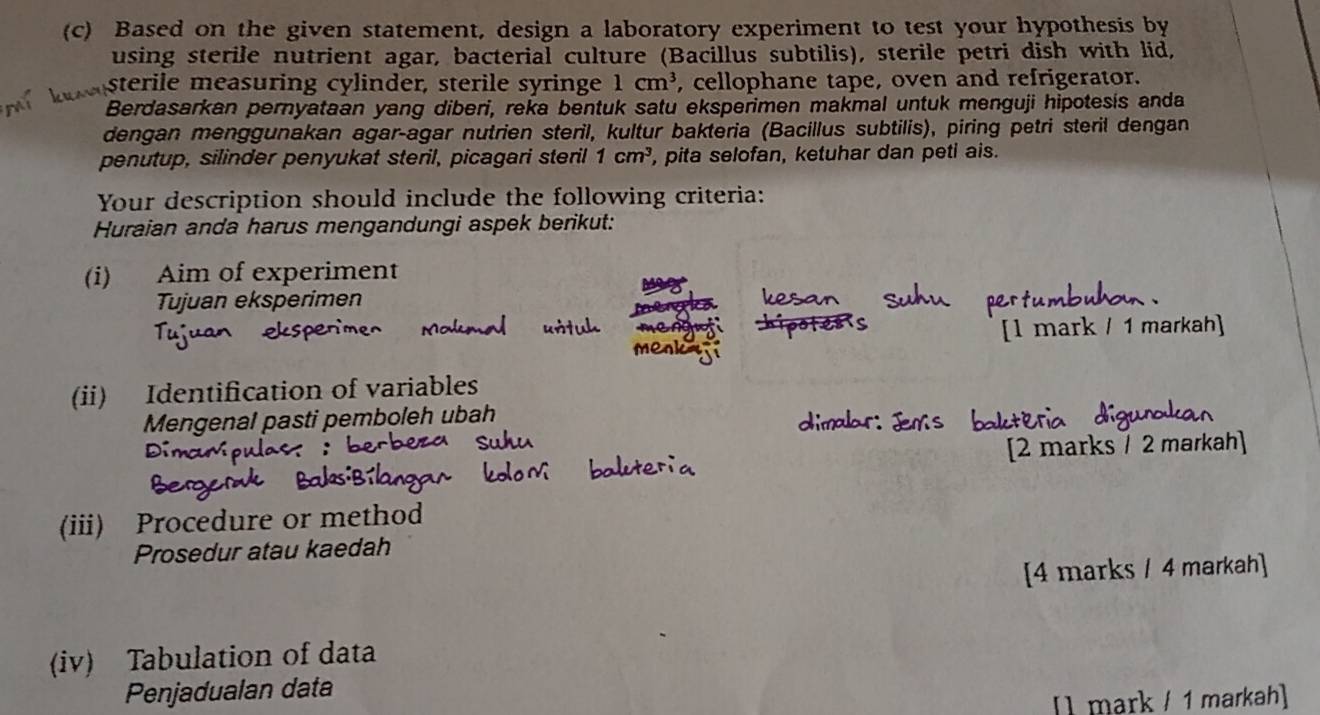 (c) Based on the given statement, design a laboratory experiment to test your hypothesis by
using sterile nutrient agar, bacterial culture (Bacillus subtilis), sterile petri dish with lid,
sterile measuring cylinder, sterile syringe 1 cm³, cellophane tape, oven and refrigerator.
Berdasarkan pernyataan yang diberi, reka bentuk satu eksperimen makmal untuk menguji hipotesis anda
dengan menggunakan agar-agar nutrien steril, kultur bakteria (Bacillus subtilis), piring petri steril dengan
penutup, silinder penyukat steril, picagari steril 1 cm³, pita selofan, ketuhar dan peti ais.
Your description should include the following criteria:
Huraian anda harus mengandungi aspek berikut:
(i) Aim of experiment
Tujuan eksperimen
kesan suhu pertumbuhan.
Tujuan eksperimen makmal untuk menguji hipotesis
[1 mark / 1 markah]
menkaji
(ii) Identification of variables
Mengenal pasti pemboleh ubah
dimalar: Jenis bakteria digunakan
Dimanipulasi : berbeza suhu
[2 marks / 2 markah]
Bergerak Balas:Bilangan koloni bakteria
(iii) Procedure or method
Prosedur atau kaedah
[4 marks / 4 markah]
(iv) Tabulation of data
Penjadualan data
[1 mark / 1 markah]